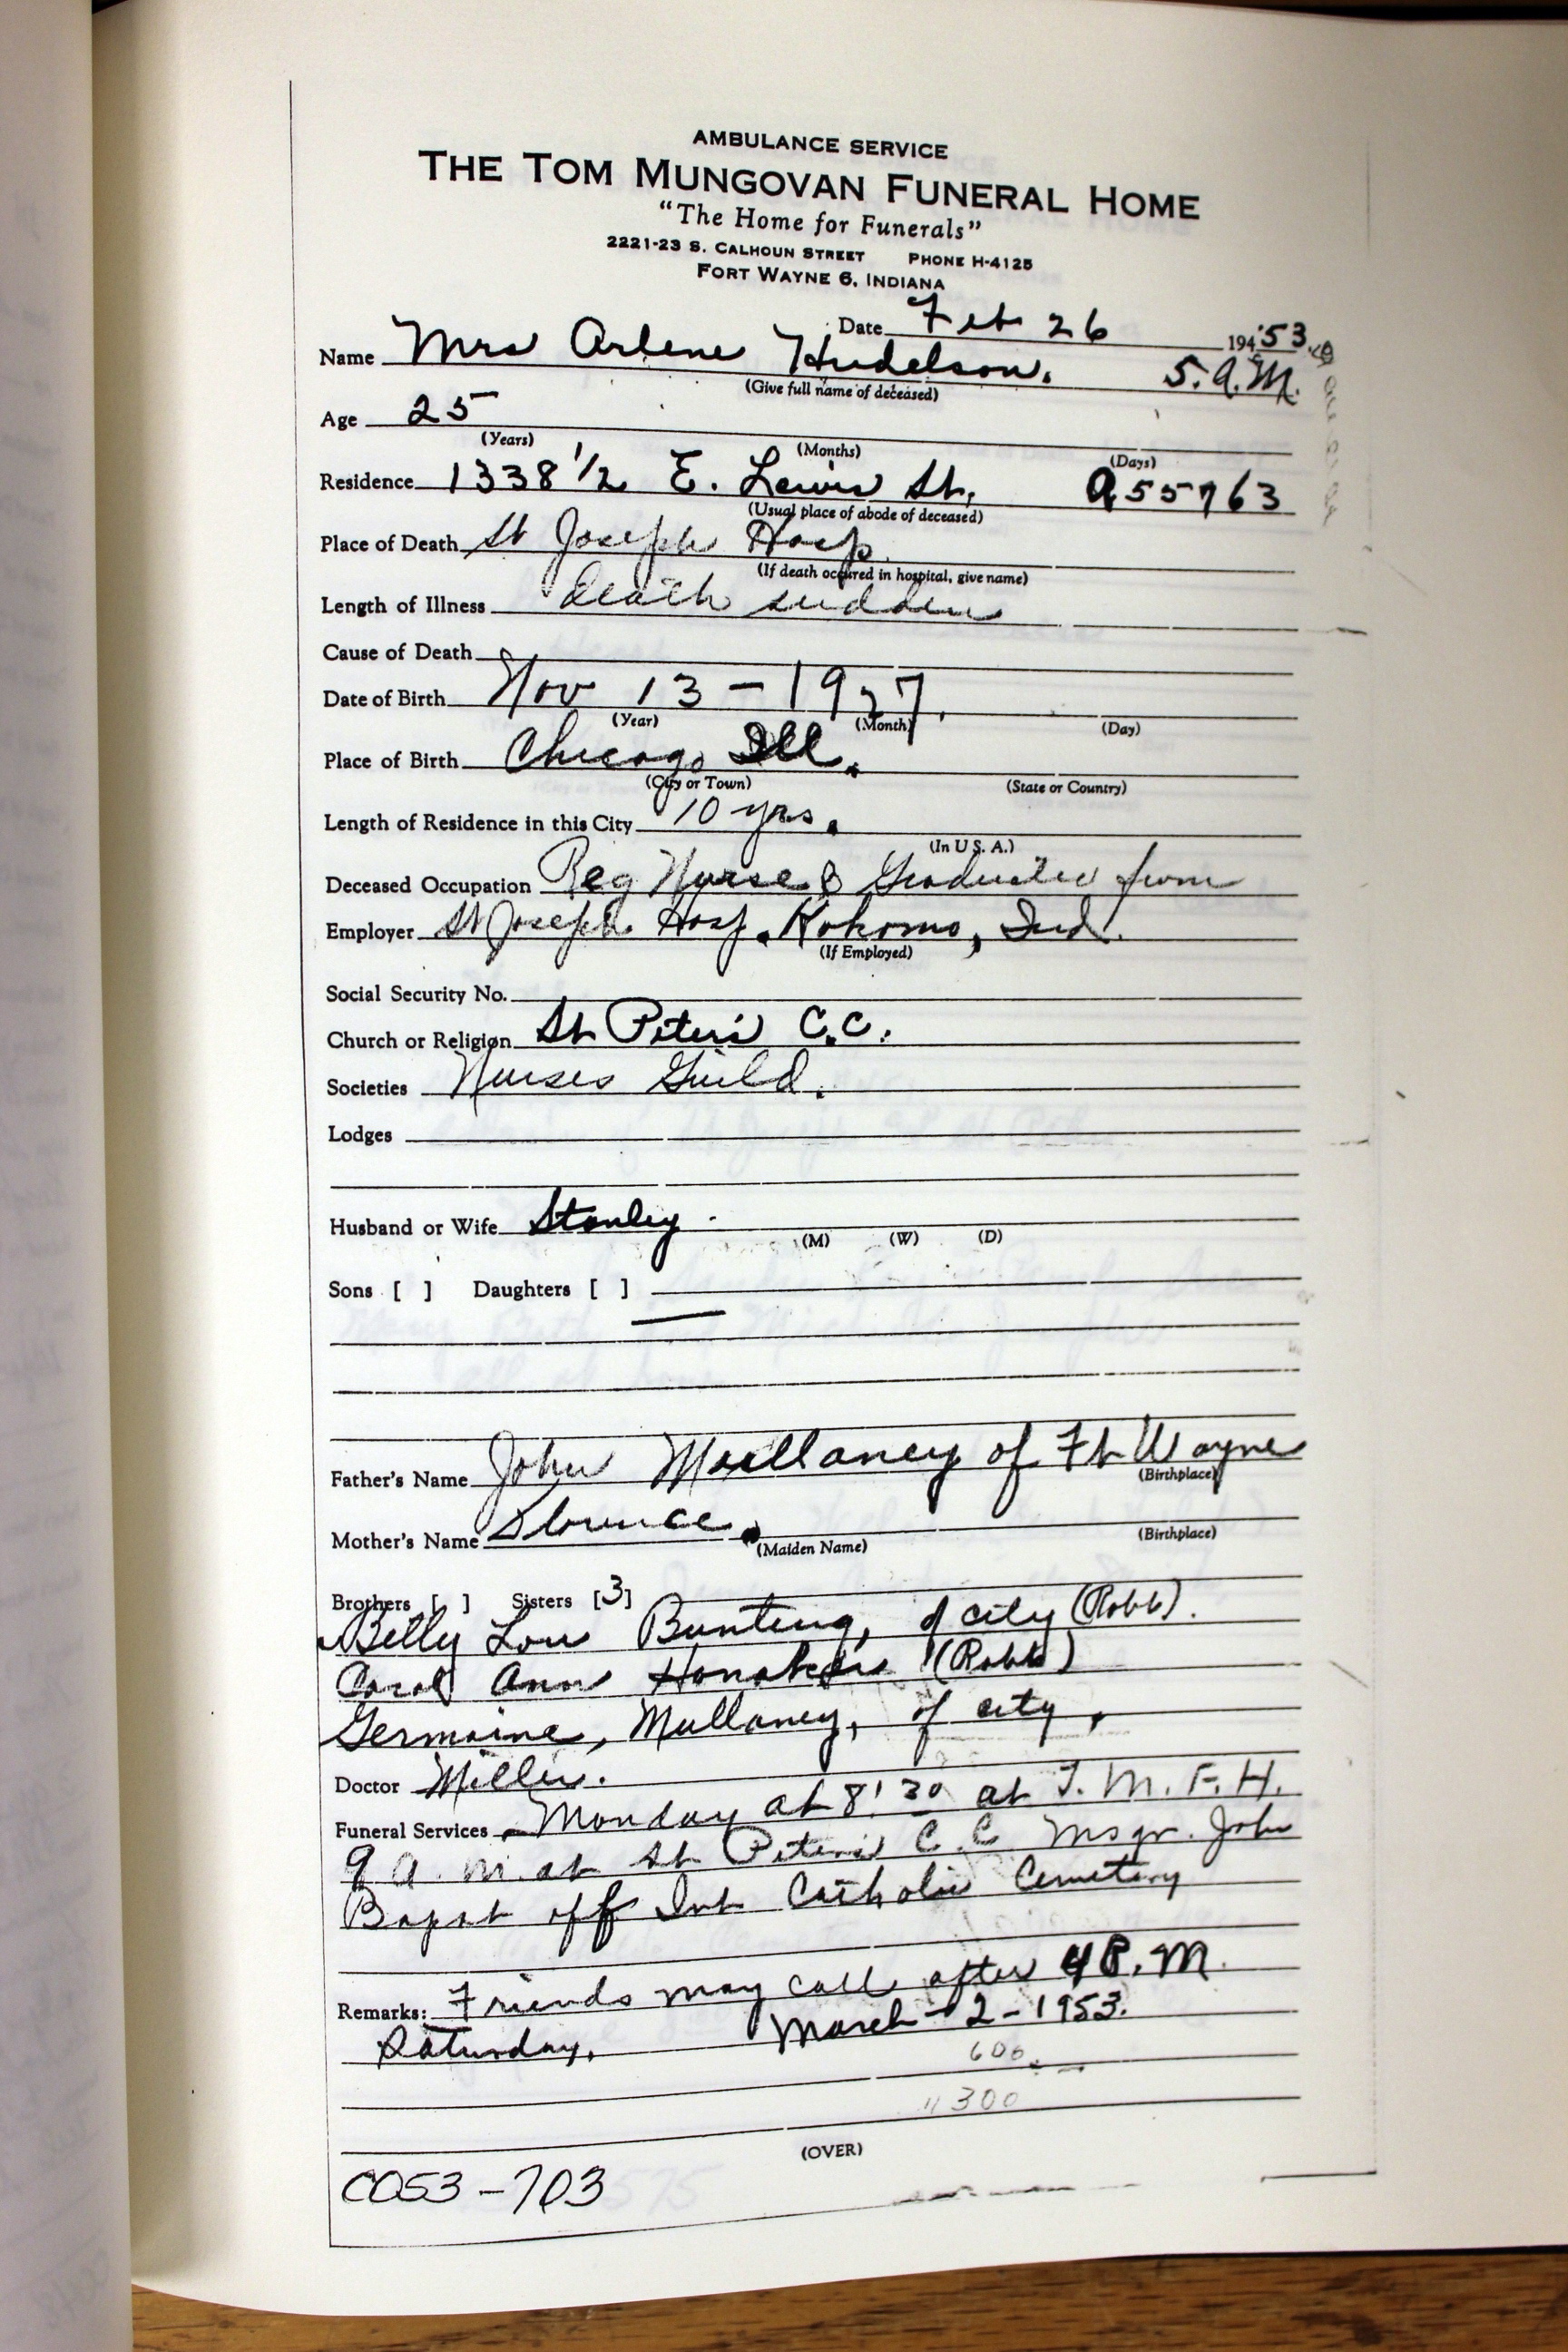 AMBULANCE SERVICE
THE TOM MUNGOVAN FUNERAL HOME
"The Home for Funerals"
2221-23 S. CALHOUN STREET PHONE H-4125
FORT WAYNE 6, INDIANA
Date Feb 26 194 53
Name Mrs Arlene Hudelson. 5. A.M.
(Give full name of deceased)
Age 25
(Years) (Months) (Days)
Residence 1338 1/2 E. Lewis St. A55763
(Usual place of abode of deceased)
Place of Death St Joseph Hosp.
(If death occured in hospital, give name)
Length of Illness death sudden
Cause of Death
Date of Birth Nov 13 - 1927.
(Year) (Month) (Day)
Place of Birth Chicago Ill.
(City or Town) (State or Country)
Length of Residence in this City 10 yrs.
(In U. S. A.)
Deceased Occupation Reg Nurse & Graduated from
Employer St Joseph Hosp. Kokomo, Ind.
(If Employed)
Social Security No.
Church or Religion St Peter's C.C.
Societies Nurses Guild.
Lodges
Husband or Wife Stanley
(M) (W) (D)
Sons [ ] Daughters [ ]
Father's Name John Mullaney of Ft Wayne
(Birthplace)
Mother's Name
(Maiden Name) (Birthplace)
Brothers [ ] Sisters [3]
Betty Lou Bunting, of city (Robb).
Carol Ann (Robb)
Germaine, Mullaney, of city,
Doctor Miller.
Funeral Services Monday at 8:30 at T. M. F. H.
9 A. M. at St Peter's C. C Msgr. John
Bapst off Int Catholic Cemetery
Remarks: Friends may call after 4 P. M.
Saturday. March - 2 - 1953.
600
" 300
(OVER)
C053-703